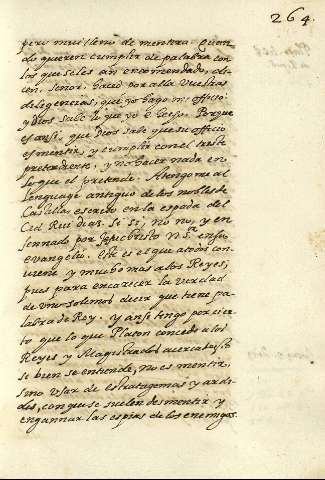 264.
pero mui lleno de mentira. Quan-
do quieren cumplir de palabra con
los que seles an encomendado, di-
cen. Señor, haced por alla vuestras
diligencias, que yo hago mi officio;
y Dios sabe lo que yo e hecho. Porque
es ansi, que Dios sabe que su officio
es mentir, y cumplir con el triste
pretendiente, y no hacer nada en
lo que el pretende. Atengome al
lenguaje antiguo de los nobles de
Castilla, escrito en la espada del
Cid Rui diaz. Si si, no no, y en
señado por Jesuchristo nro. Sr. en su
evangelio. Este es el que a todos con-
viene y mucho mas a los Reyes,
pues para encarecer la verdad
de uno solemos decir que tiene pa-
labra de Rey. Y ansi tengo por cier-
to que lo que Platon concede a los
Reyes y Magistrados acerca
si bien se entiende, no es mentir,
sino usar de estratagemas y ardi-
des, con que se suelen desmentir y
engannar las espias de los enemigos.